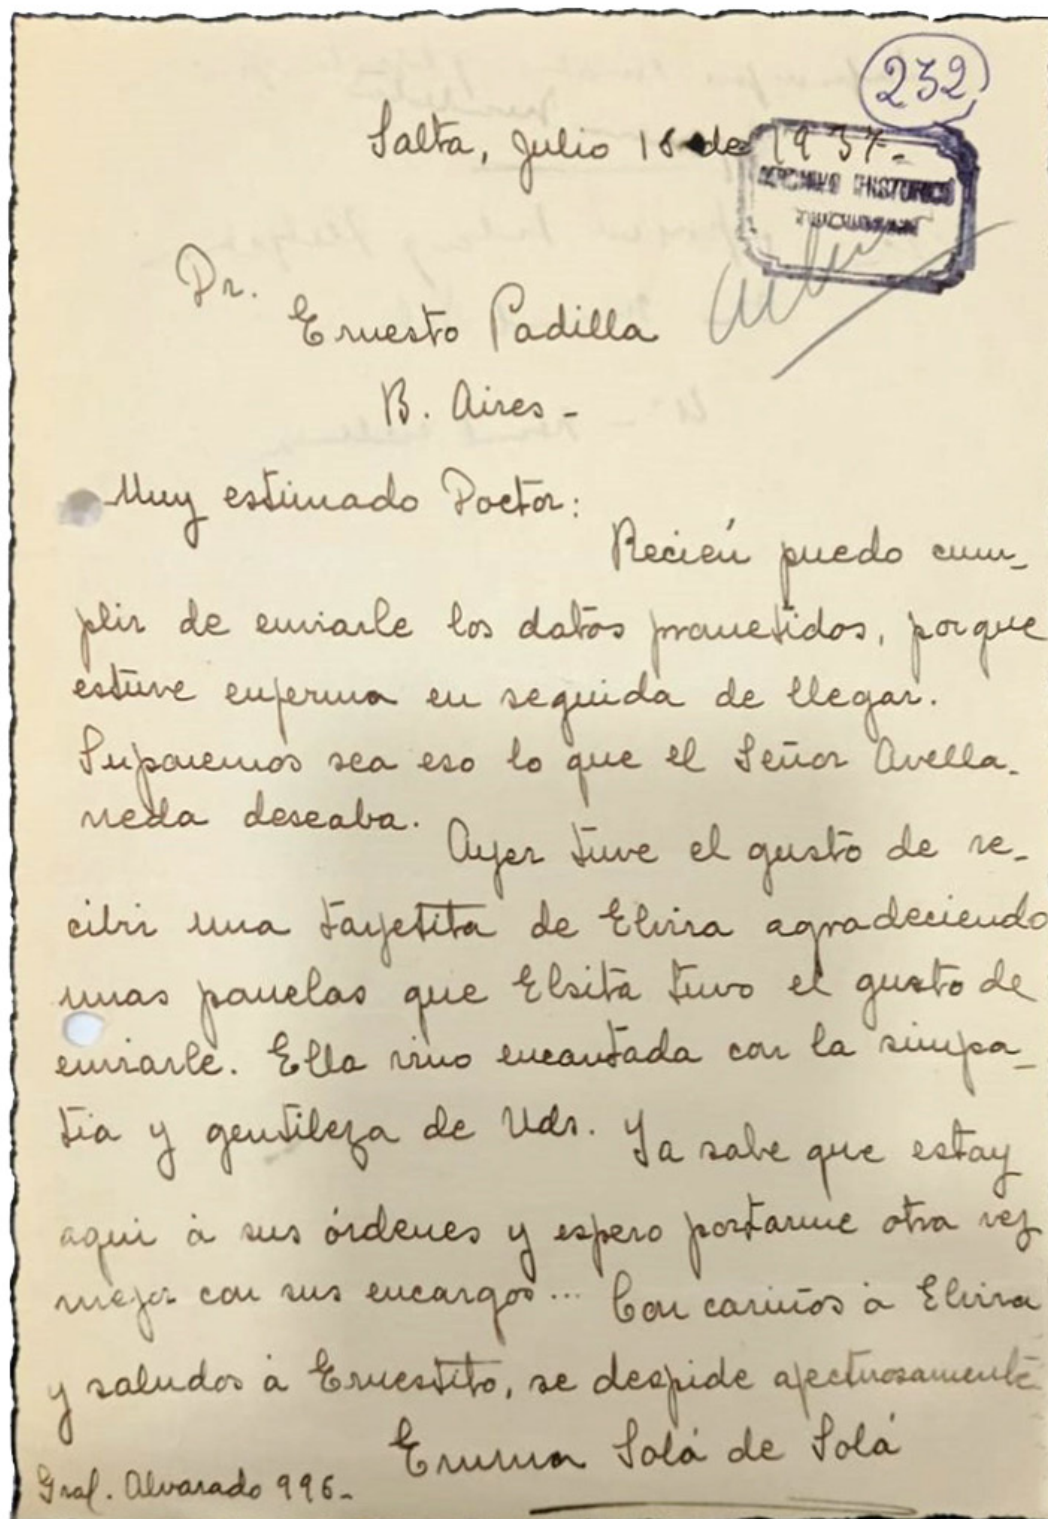 232
Salta, Julio 18 de 1937-
ARCHIVO HISTORICO
TUCUMAN
Dr.
Ernesto Padilla
B. Aires -
Muy estimado Doctor:
Recién puedo cum-
plir de enviarle los datos prometidos, porque
estuve enferma en seguida de llegar.
Suponemos sea eso lo que el Señor Avella-
neda deseaba.
Ayer tuve el gusto de re-
cibir una tarjetita de Elvira agradeciendo
unas panelas que Elsita tuvo el gusto de
enviarle. Ella vino encantada con la simpa-
tia y gentileza de Uds. Ya sabe que estoy
aqui à sus órdenes y espero portarme otra vez
mejor con sus encargos... Con cariños à Elvira
y saludos à Ernestito, se despide afectuosamente
Emma Solá de Solá
Gral. Alvarado 996-